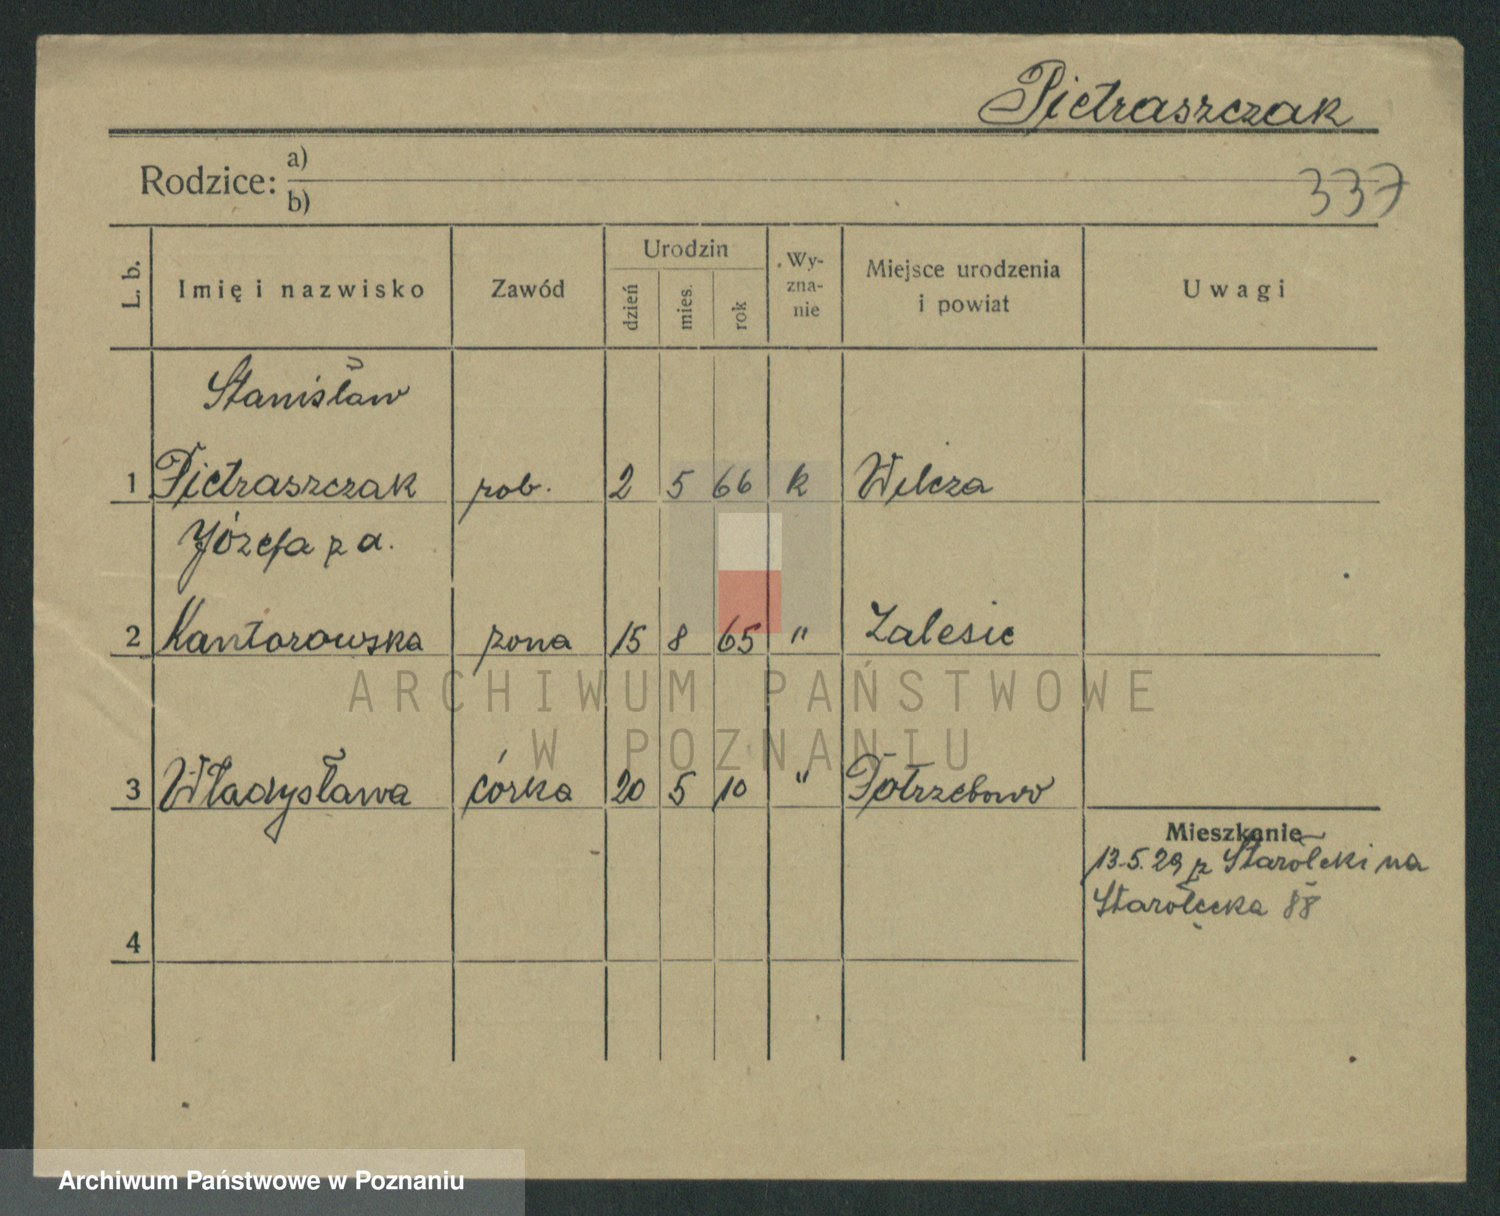 Pietraszczak
Rodzice: a)
b)
337
L. b.
Imię i nazwisko
Zawód
Urodzin
dzień
mies.
rok
Wy-
zna-
nie
Miejsce urodzenia
i powiat
Uwagi
Stanisław
1 Pietraszczak rob. 2 5 66 k Wilcza
Józefa z d.
2 Kantorowska żona 15 8 65 " Zalesie
3 Władysława córka 20 5 10 " Potrzebowo
Mieszkanie
13.5.29 z Starołęki na
Starołęcka 88
4
ARCHIWUM PAŃSTWOWE
W POZNANIU
Archiwum Państwowe w Poznaniu